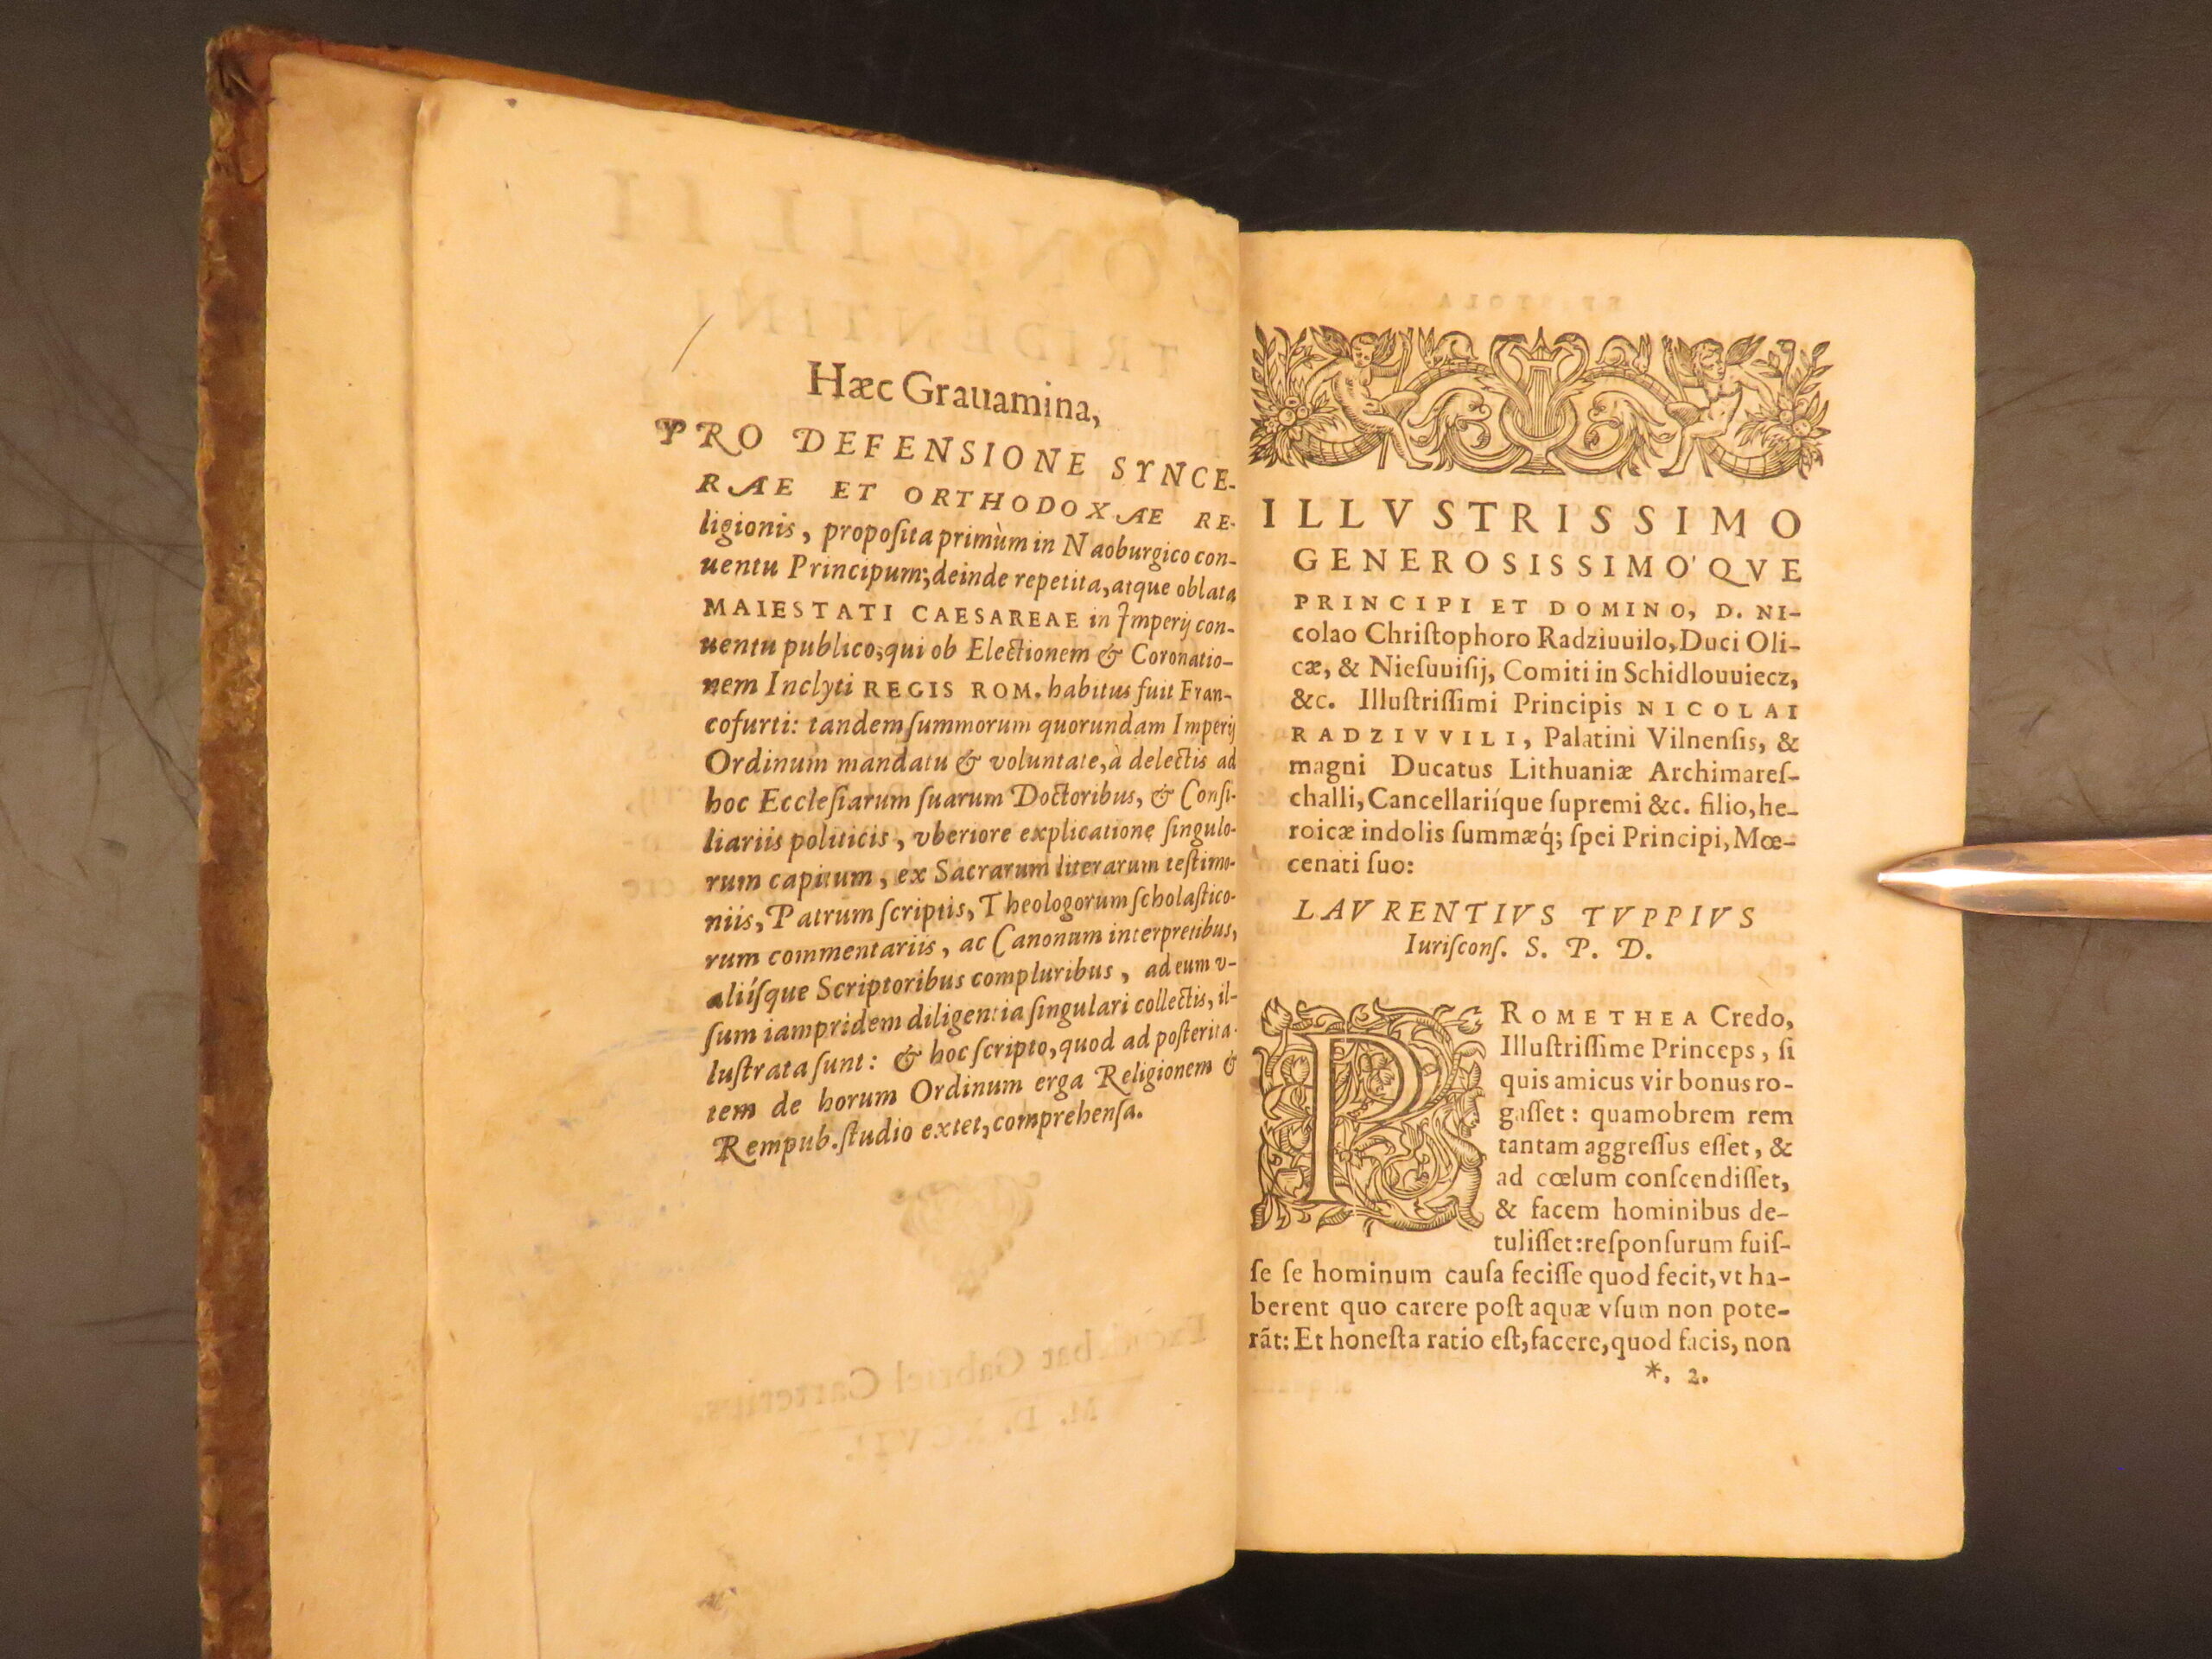 Hæc Grauamina,
PRO DEFENSIONE SYNCE-
RAE ET ORTHODOXAE RE-
ligionis, propoſita primùm in Naoburgico con-
uentu Principum; deinde repetita, atque oblata
MAIESTATI CAESAREAE in Imperij con-
uentu publico, qui ob Electionem & Coronatio-
nem Inclyti REGIS ROM. habitus fuit Fran-
cofurti: tandem ſummorum quorundam Imperij
Ordinum mandatu & voluntate, à delectis ad
hoc Eccleſiarum ſuarum Doctoribus, & Conſi-
liariis politicis, vberiore explicatione ſingulo-
rum capitum, ex Sacrarum literarum teſtimo-
niis, Patrum ſcriptis, Theologorum ſcholaſtico-
rum commentariis, ac Canonum interpretibus,
aliíſque Scriptoribus compluribus, ad eum v-
ſum iampridem diligentia ſingulari collectis, il-
luſtrata ſunt: & hoc ſcripto, quod ad poſterita-
tem de horum Ordinum erga Religionem &
Rempub. ſtudio extet, comprehenſa.
CONCILII
TRIDENTINI
Excudebat Gabriel Carterius.
M. D. XCVII.
ILLVSTRISSIMO
GENEROSISSIMO'QVE
PRINCIPI ET DOMINO, D. NI-
colao Chriſtophoro Radziuuilo, Duci Oli-
cæ, & Nieſuuiſij, Comiti in Schidlouuiecz,
&c. Illuſtriſſimi Principis NICOLAI
RADZIVVILI, Palatini Vilnenſis, &
magni Ducatus Lithuaniæ Archimareſ-
challi, Cancellariíque ſupremi &c. filio, he-
roicæ indolis ſummæq́; ſpei Principi, Mœ-
cenati ſuo:
LAVRENTIVS TVPPIVS
Iuriſconſ. S. P. D.
PROMETHEA Credo,
Illuſtriſſime Princeps, ſi
quis amicus vir bonus ro-
gaſſet: quamobrem rem
tantam aggreſſus eſſet, &
ad cœlum conſcendiſſet,
& facem hominibus de-
tuliſſet: reſponſurum fuiſ-
ſe ſe hominum cauſa feciſſe quod fecit, vt ha-
berent quo carere poſt aquæ vſum non pote-
rãt: Et honeſta ratio eſt, facere, quod facis, non
*. 2.